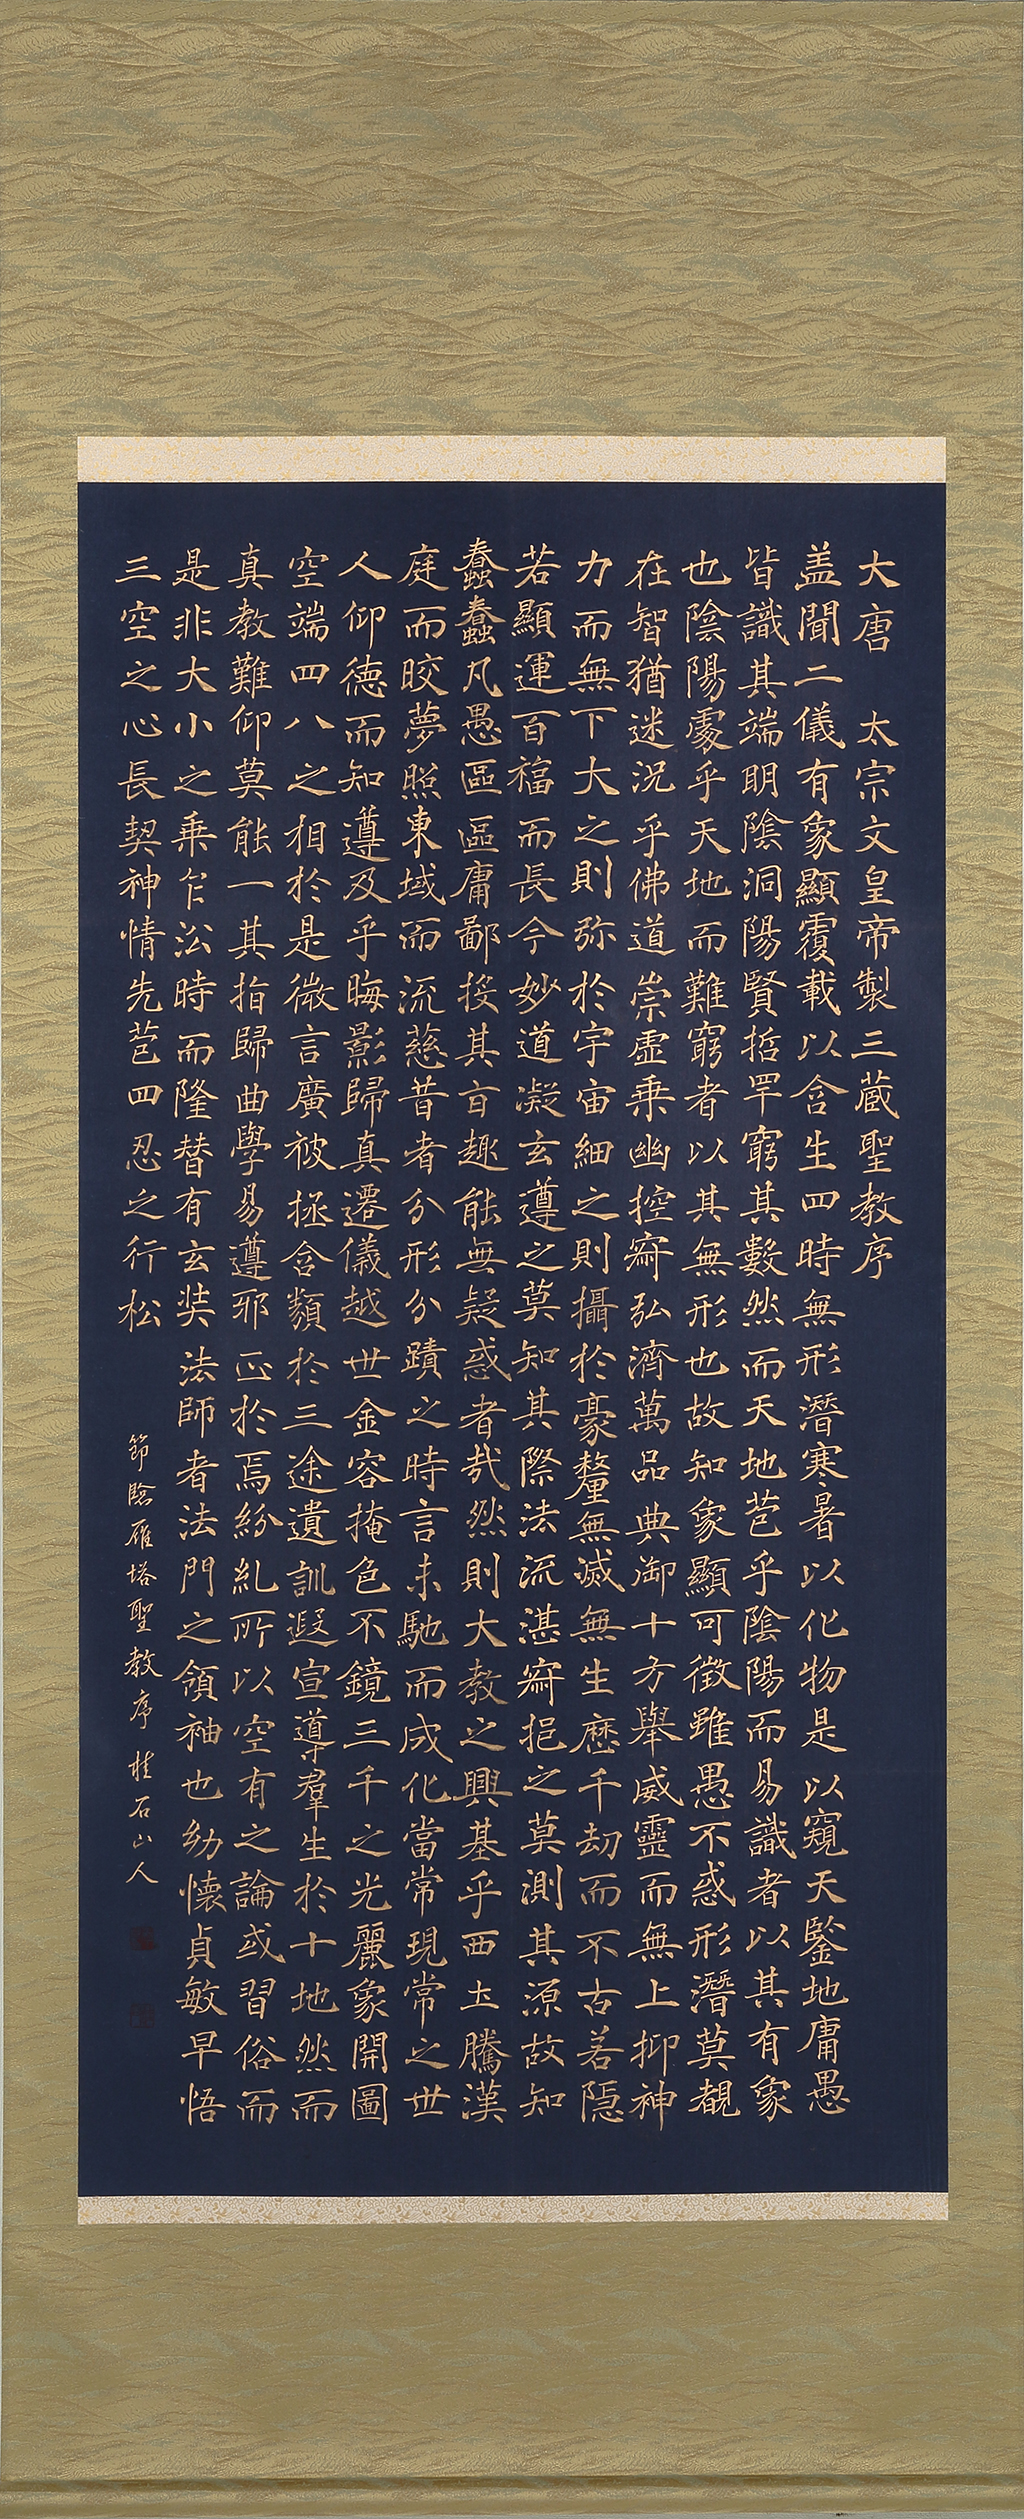 大唐 太宗文皇帝製三蔵聖教序
盖聞二儀有象顯覆載以含生四時無形潛寒暑以化物是以窺天鑒地庸愚
皆識其端明陰洞陽賢哲罕窮其數然而天地苞乎陰陽而易識者以其有象
也陰陽處乎天地而難窮者以其無形也故知象顯可徵雖愚不惑形潛莫覩
在智猶迷況乎佛道崇虛乗幽控寂弘濟萬品典御十方舉威靈而無上抑神
力而無下大之則弥於宇宙細之則攝於豪釐無滅無生歴千劫而不古若隱
若顯運百福而長今妙道凝玄遵之莫知其際法流湛寂挹之莫測其源故知
蠢蠢凡愚區區庸鄙投其旨趣能無疑惑者哉然則大教之興基乎西土騰漢
庭而晈夢照東域而流慈昔者分形分蹟之時言未馳而成化當常現常之世
人仰德而知遵及乎晦影歸真遷儀越世金容掩色不鏡三千之光麗象開圖
空端四八之相於是微言廣被拯含類於三途遺訓遐宣導羣生於十地然而
真教難仰莫能一其指歸曲學易遵邪正於焉紛糺所以空有之論或習俗而
是非大小之乗乍沿時而隆替有玄奘法師者法門之領袖也幼懐貞敏早悟
三空之心長契神情先苞四忍之行松
節臨雁塔聖教序 桂石山人